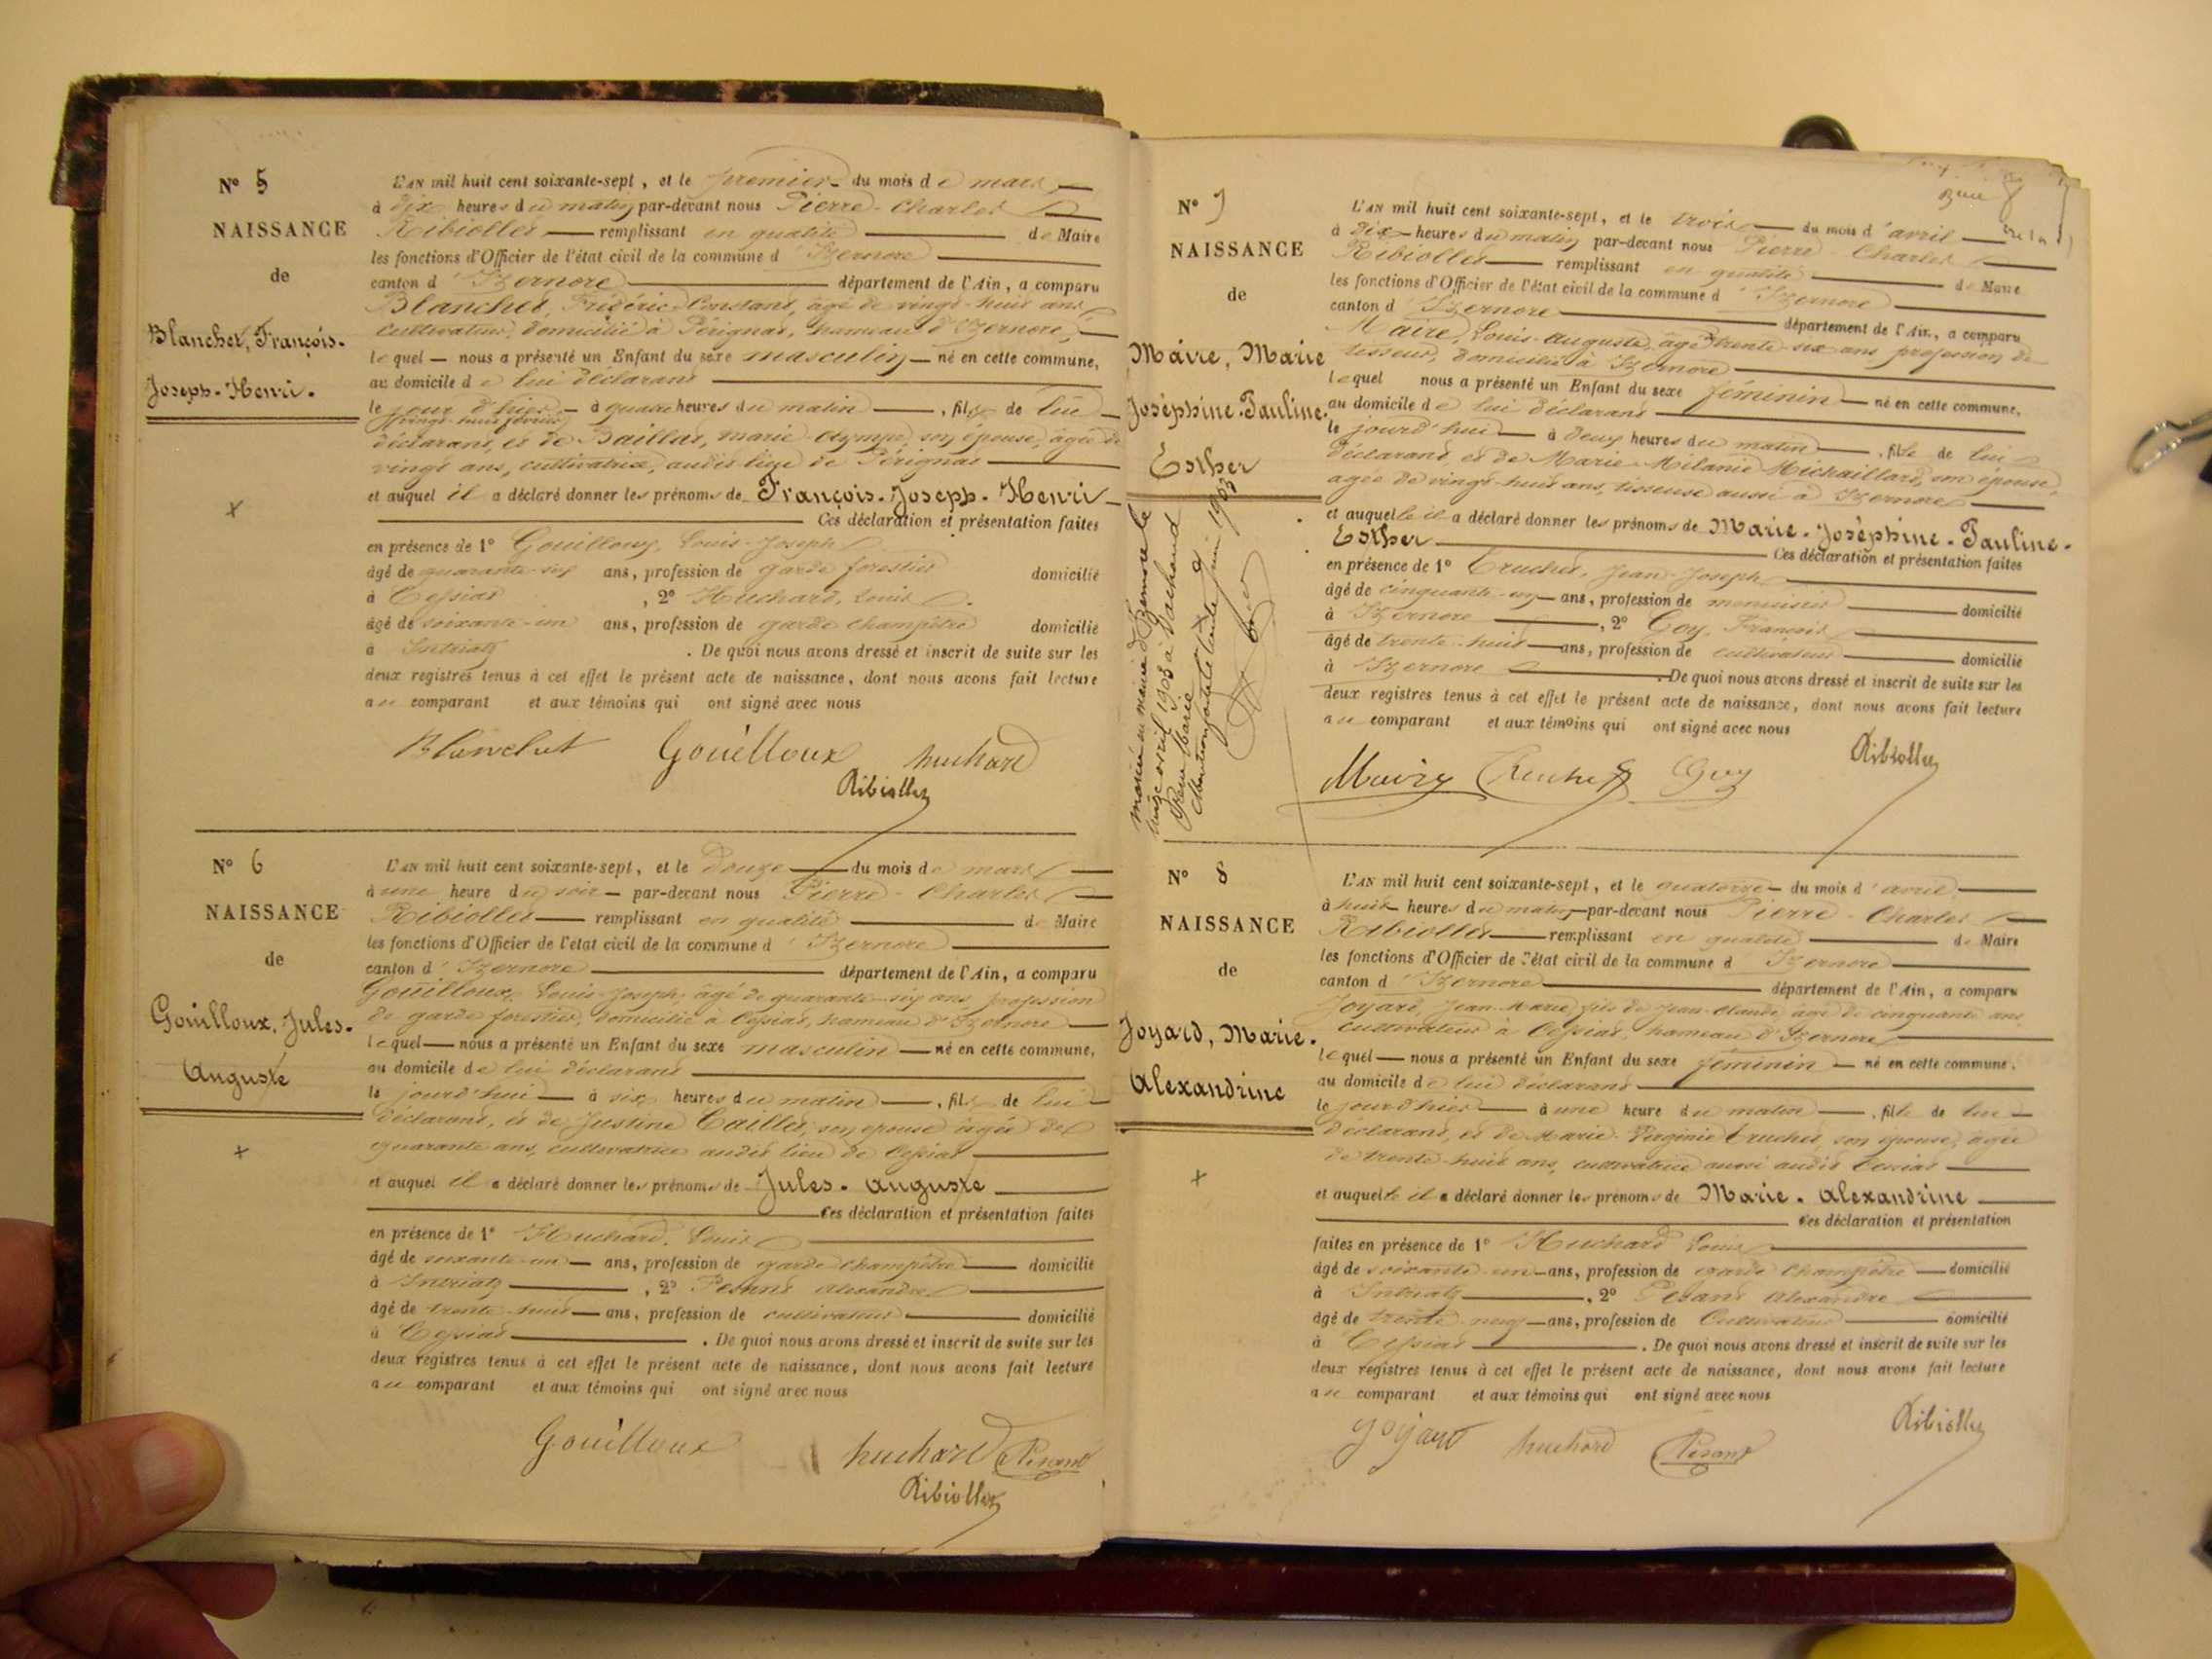 N° 5
NAISSANCE
de
Blanchet, François-
Joseph-Henri.
L'AN mil huit cent soixante-sept, et le premier du mois de mars
à dix heures du matin par-devant nous Pierre-Charles
Ribiollet remplissant en qualité de Maire
les fonctions d'Officier de l'état civil de la commune d'Izernore
canton d'Izernore département de l'Ain, a comparu
Blanchet, Frédéric Constant, âgé de vingt-huit ans,
cultivateur, domicilié à Pérignat, hameau d'Izernore,
lequel nous a présenté un Enfant du sexe masculin né en cette commune,
au domicile de lui déclarant
le jour d'hier à quatre heures du matin, fils de lui
vingt-huit février
déclarant, et de Baillat, Marie Olympe, son épouse, âgée de
vingt ans, cultivatrice, audit lieu de Pérignat
et auquel il a déclaré donner les prénoms de François-Joseph-Henri
Ces déclaration et présentation faites
en présence de 1° Gouilloux, Louis-Joseph
âgé de quarante-six ans, profession de garde forestier domicilié
à Cessiat, 2° Huchard, Louis
âgé de soixante-un ans, profession de garde champêtre domicilié
à Intriat. De quoi nous avons dressé et inscrit de suite sur les
deux registres tenus à cet effet le présent acte de naissance, dont nous avons fait lecture
au comparant et aux témoins qui ont signé avec nous
Blanchet Gouilloux huchard
Ribiollet
N° 6
NAISSANCE
de
Gouilloux, Jules-
Auguste
L'AN mil huit cent soixante-sept, et le douze du mois de mars
à une heure du soir par-devant nous Pierre-Charles
Ribiollet remplissant en qualité de Maire
les fonctions d'Officier de l'état civil de la commune d'Izernore
canton d'Izernore département de l'Ain, a comparu
Gouilloux, Louis-Joseph, âgé de quarante-six ans, profession
de garde forestier, domicilié à Cessiat, hameau d'Izernore
lequel nous a présenté un Enfant du sexe masculin né en cette commune,
au domicile de lui déclarant
le jourd'hui à six heures du matin, fils de lui
déclarant, et de Justine Caillet, son épouse âgée de
quarante ans, cultivatrice audit lieu de Cessiat
et auquel il a déclaré donner les prénoms de Jules-Auguste
Ces déclaration et présentation faites
en présence de 1° Huchard, Louis
âgé de soixante-un ans, profession de garde champêtre domicilié
à Intriat, 2° Pesant Alexandre
âgé de trente-huit ans, profession de cultivateur domicilié
à Cessiat. De quoi nous avons dressé et inscrit de suite sur les
deux registres tenus à cet effet le présent acte de naissance, dont nous avons fait lecture
au comparant et aux témoins qui ont signé avec nous
Gouilloux huchard Pesant
Ribiollet
N° 7
NAISSANCE
de
Maire, Marie
Joséphine-Pauline-
Esther
Mariée en mairie d'Izernore le
onze avril 1903 à
L'AN mil huit cent soixante-sept, et le trois du mois d'avril
à dix heures du matin par-devant nous Pierre-Charles
Ribiollet remplissant en qualité de Maire
les fonctions d'Officier de l'état civil de la commune d'Izernore
canton d'Izernore département de l'Ain, a comparu
Maire, Louis-Auguste, âgé trente-six ans profession de
tisseur, domicilié à Izernore
lequel nous a présenté un Enfant du sexe féminin né en cette commune,
au domicile de lui déclarant
le jourd'hui à deux heures du matin, fille de lui
déclarant, et de Marie-Mélanie Michaillard, son épouse,
âgée de vingt-huit ans, tisseuse aussi à Izernore
et auquelle il a déclaré donner les prénoms de Marie-Joséphine-Pauline-
Esther
Ces déclaration et présentation faites
en présence de 1° Truchet, Jean-Joseph
âgé de cinquante-un ans, profession de menuisier domicilié
à Izernore, 2° Goy, François
âgé de trente-huit ans, profession de cultivateur domicilié
à Izernore. De quoi nous avons dressé et inscrit de suite sur les
deux registres tenus à cet effet le présent acte de naissance, dont nous avons fait lecture
au comparant et aux témoins qui ont signé avec nous
Ribiollet
Maire Truchet Goy
N° 8
NAISSANCE
de
Joyard, Marie-
Alexandrine
L'AN mil huit cent soixante-sept, et le quatorze du mois d'avril
à huit heures du matin par-devant nous Pierre-Charles
Ribiollet remplissant en qualité de Maire
les fonctions d'Officier de l'état civil de la commune d'Izernore
canton d'Izernore département de l'Ain, a comparu
Joyard, Jean-Marie, fils de Jean-Claude, âgé de cinquante ans,
cultivateur à Cessiat, hameau d'Izernore,
lequel nous a présenté un Enfant du sexe féminin né en cette commune,
au domicile de lui déclarant
le jour d'hier à une heure du matin, fille de lui
déclarant, et de Marie-Virginie Truchet, son épouse, âgée
de trente-huit ans, cultivatrice aussi audit Cessiat
et auquelle il a déclaré donner les prénoms de Marie-Alexandrine
Ces déclaration et présentation
faites en présence de 1° Huchard Louis
âgé de soixante-un ans, profession de garde champêtre domicilié
à Intriat, 2° Pesant Alexandre
âgé de trente-neuf ans, profession de Cultivateur domicilié
à Cessiat. De quoi nous avons dressé et inscrit de suite sur les
deux registres tenus à cet effet le présent acte de naissance, dont nous avons fait lecture
au comparant et aux témoins qui ont signé avec nous
Ribiollet
Joyard huchard Pesant